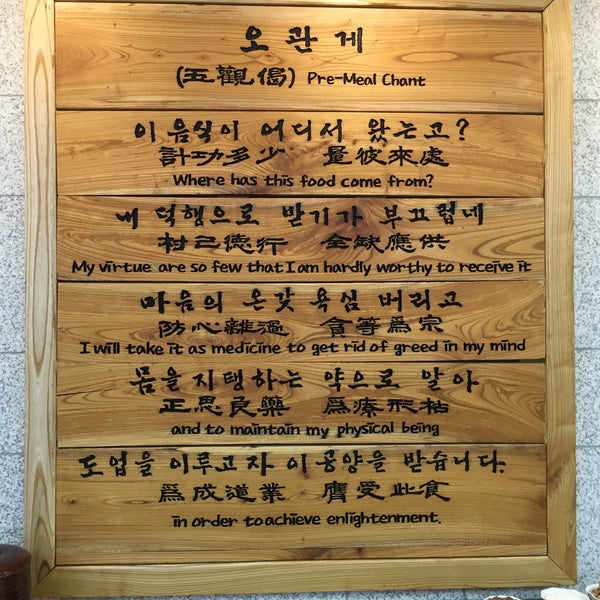 오관게
(五觀偈) Pre-Meal Chant
이 음식이 어디서 왔는고?
計功多少 量彼來處
Where has this food come from?
내 덕행으로 받기가 부끄럽네
村己德行 全缺應供
My virtue are so few that I am hardly worthy to receive it
마음의 온갖 욕심 버리고
防心離過 貪等爲宗
I will take it as medicine to get rid of greed in my mind
몸을 지탱하는 약으로 알아
正思良藥 爲療形枯
and to maintain my physical being
도업을 이루고자 이 공양을 받습니다.
爲成道業 膺受此食
in order to achieve enlightenment.